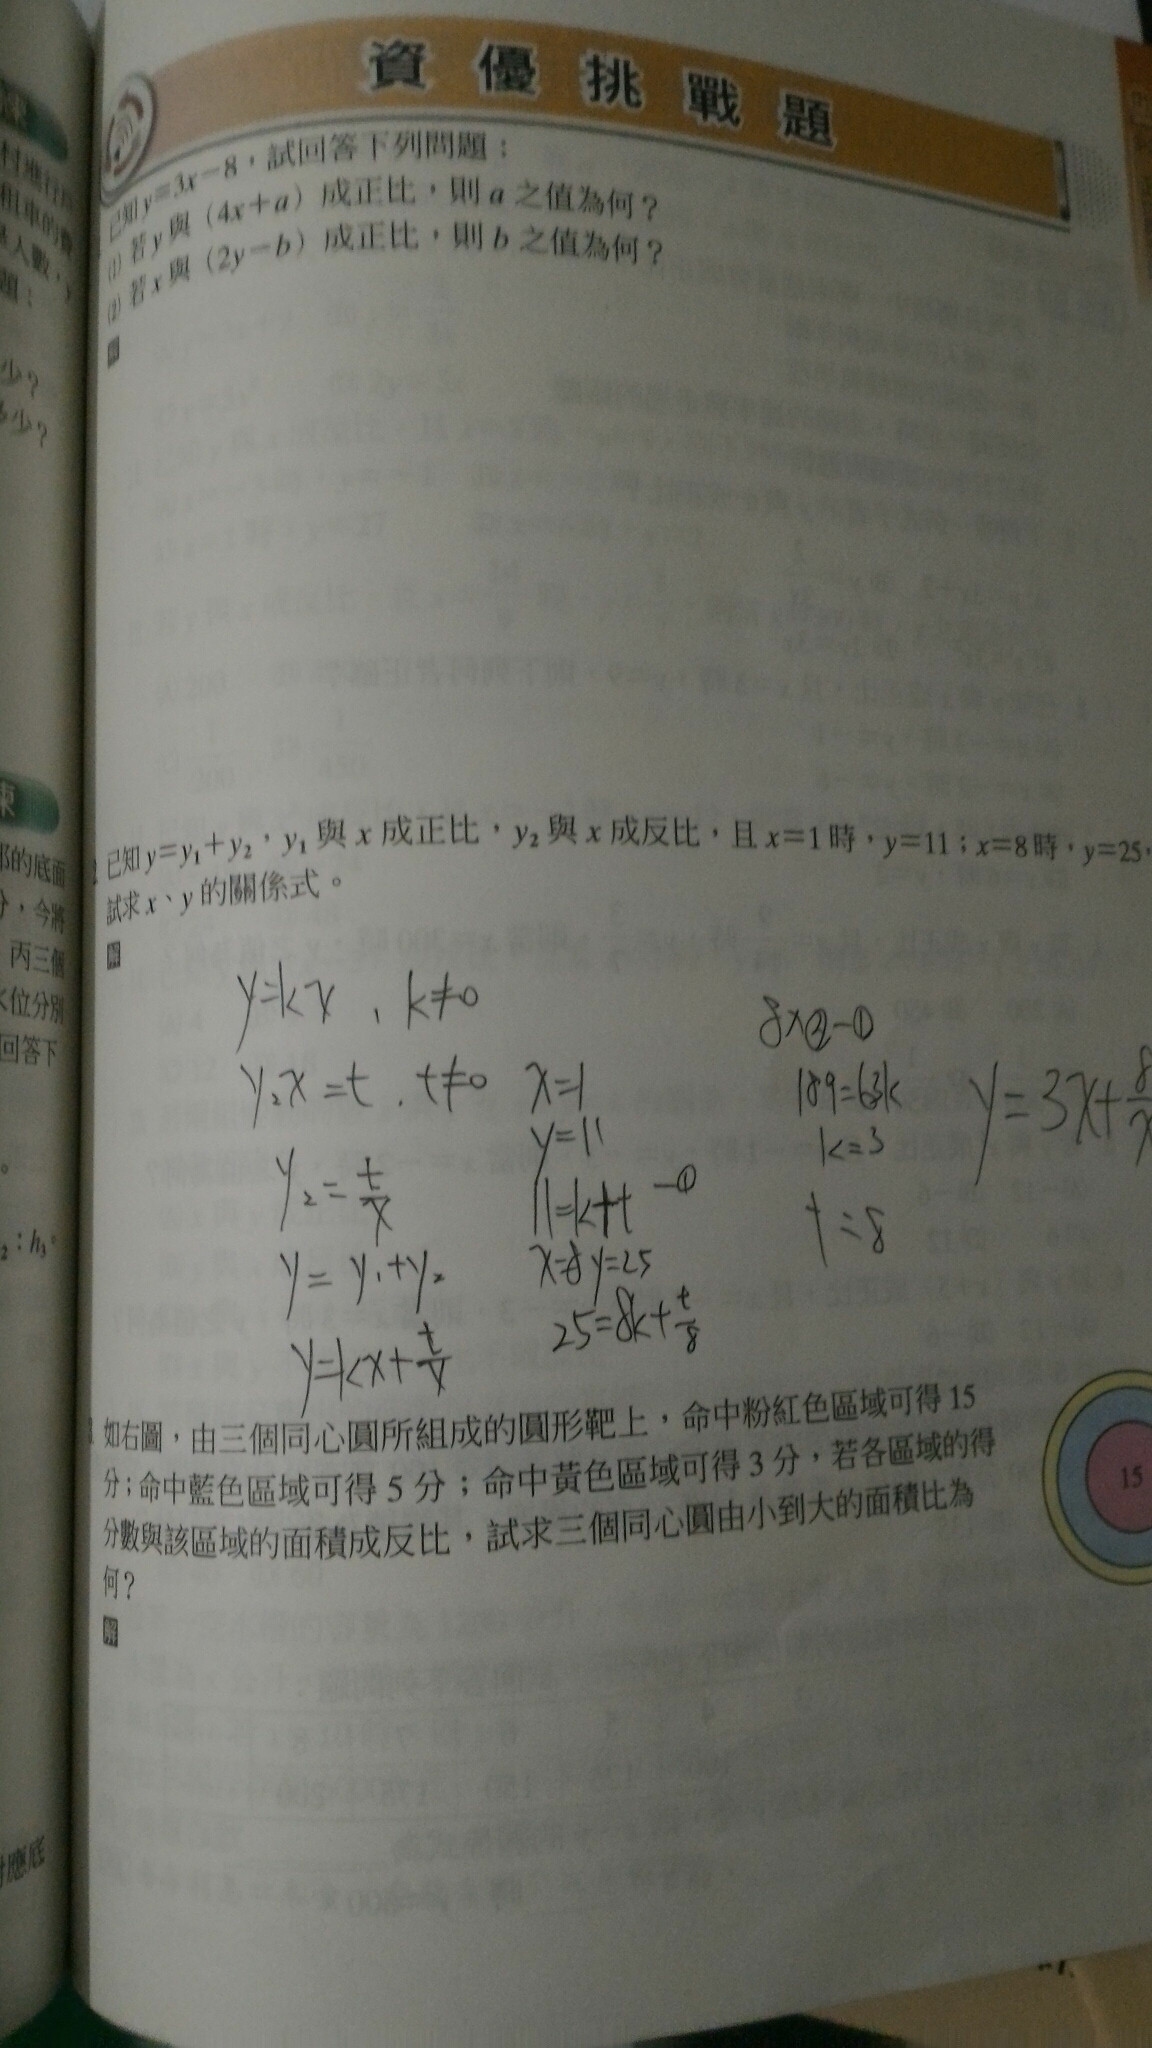 資優挑戰題
已知y=3x-8，試回答下列問題：
(1) 若y與（4x+a）成正比，則a之值為何？
(2) 若x與（2y-b）成正比，則b之值為何？
解
已知y=y₁+y₂，y₁與x成正比，y₂與x成反比，且x=1時，y=11；x=8時，y=25，
試求x、y的關係式。
解
y=kx , k≠0
y₂x=t , t≠0
y₂=t/x
y=y₁+y₂
y=kx+t/x
x=1
y=11
11=k+t -①
x=8 y=25
25=8k+t/8
8×②-①
189=63k
k=3
t=8
y=3x+8/x
如右圖，由三個同心圓所組成的圓形靶上，命中粉紅色區域可得15
分；命中藍色區域可得5分；命中黃色區域可得3分，若各區域的得
分數與該區域的面積成反比，試求三個同心圓由小到大的面積比為
何？
15
解
村進行
租車的費
人數，y
題：
少？
多少？
部的底面
分，今將
丙三個
水位分別
回答下
₂：h₃。
對應底